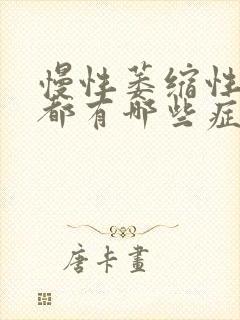 慢性萎缩性
都有哪些症
唐卡画